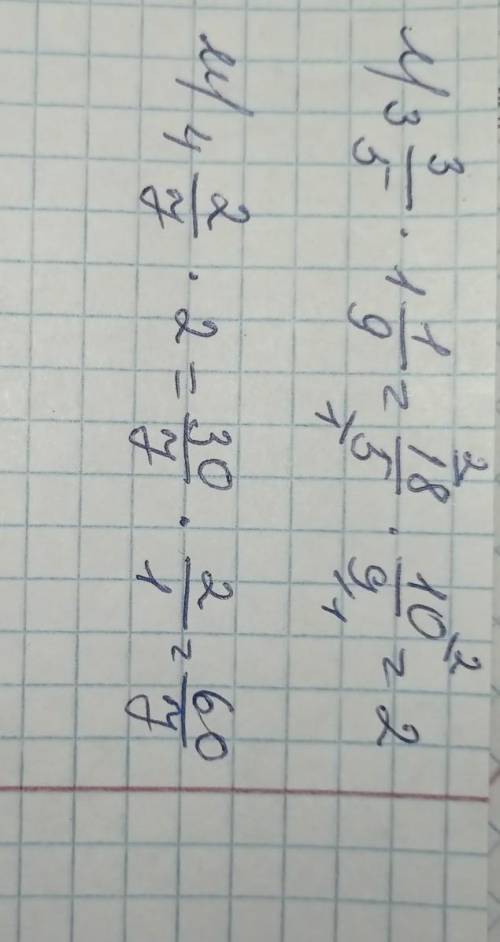 и) 3 3/5 · 1 1/9 = 18 2/5 1 · 10 2/9 1 = 2
и) 4 2/7 · 2 = 30/7 · 2/1 = 60/7